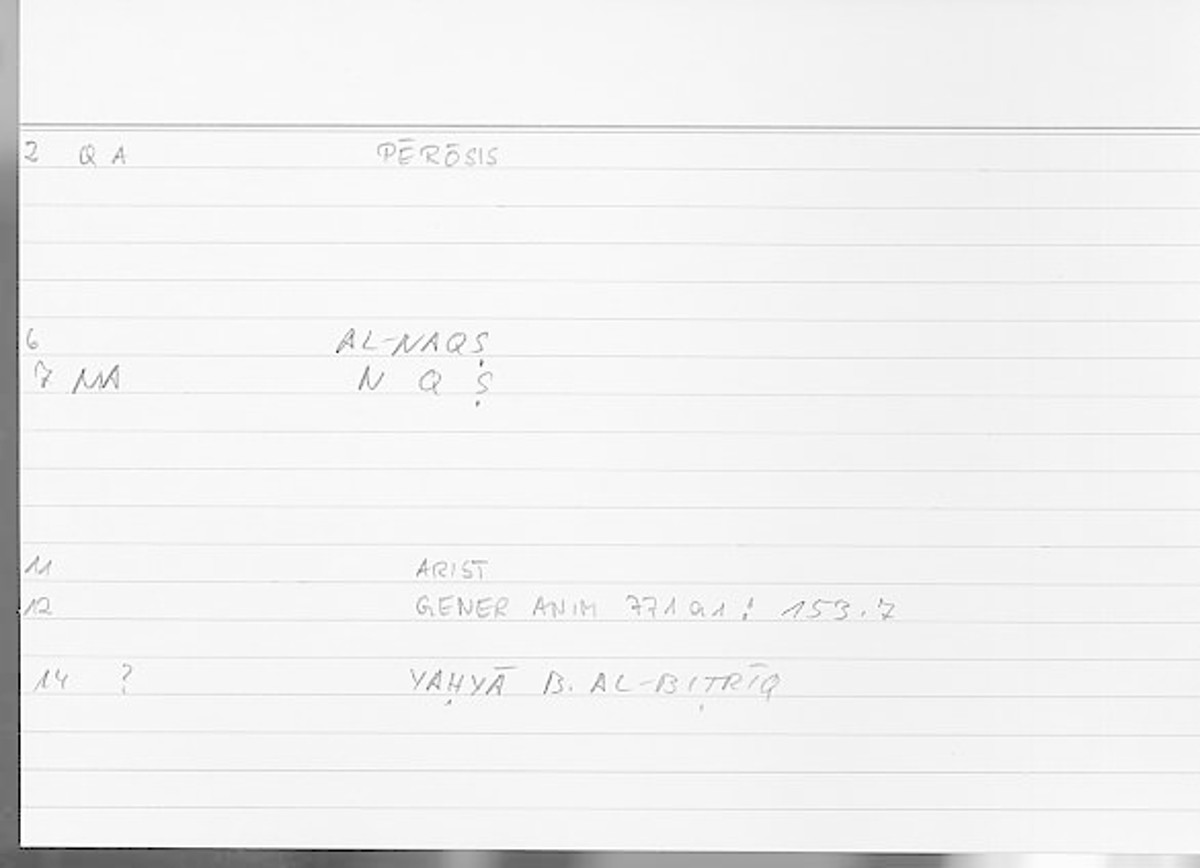 2 QA PĒRŌSIS
6 AL-NAQṢ
7 NA N Q Ṣ
11 ARIST
12 GENER ANIM 771a1 : 153.7
14 ? YAḤYĀ B. AL-BIṬRĪQ